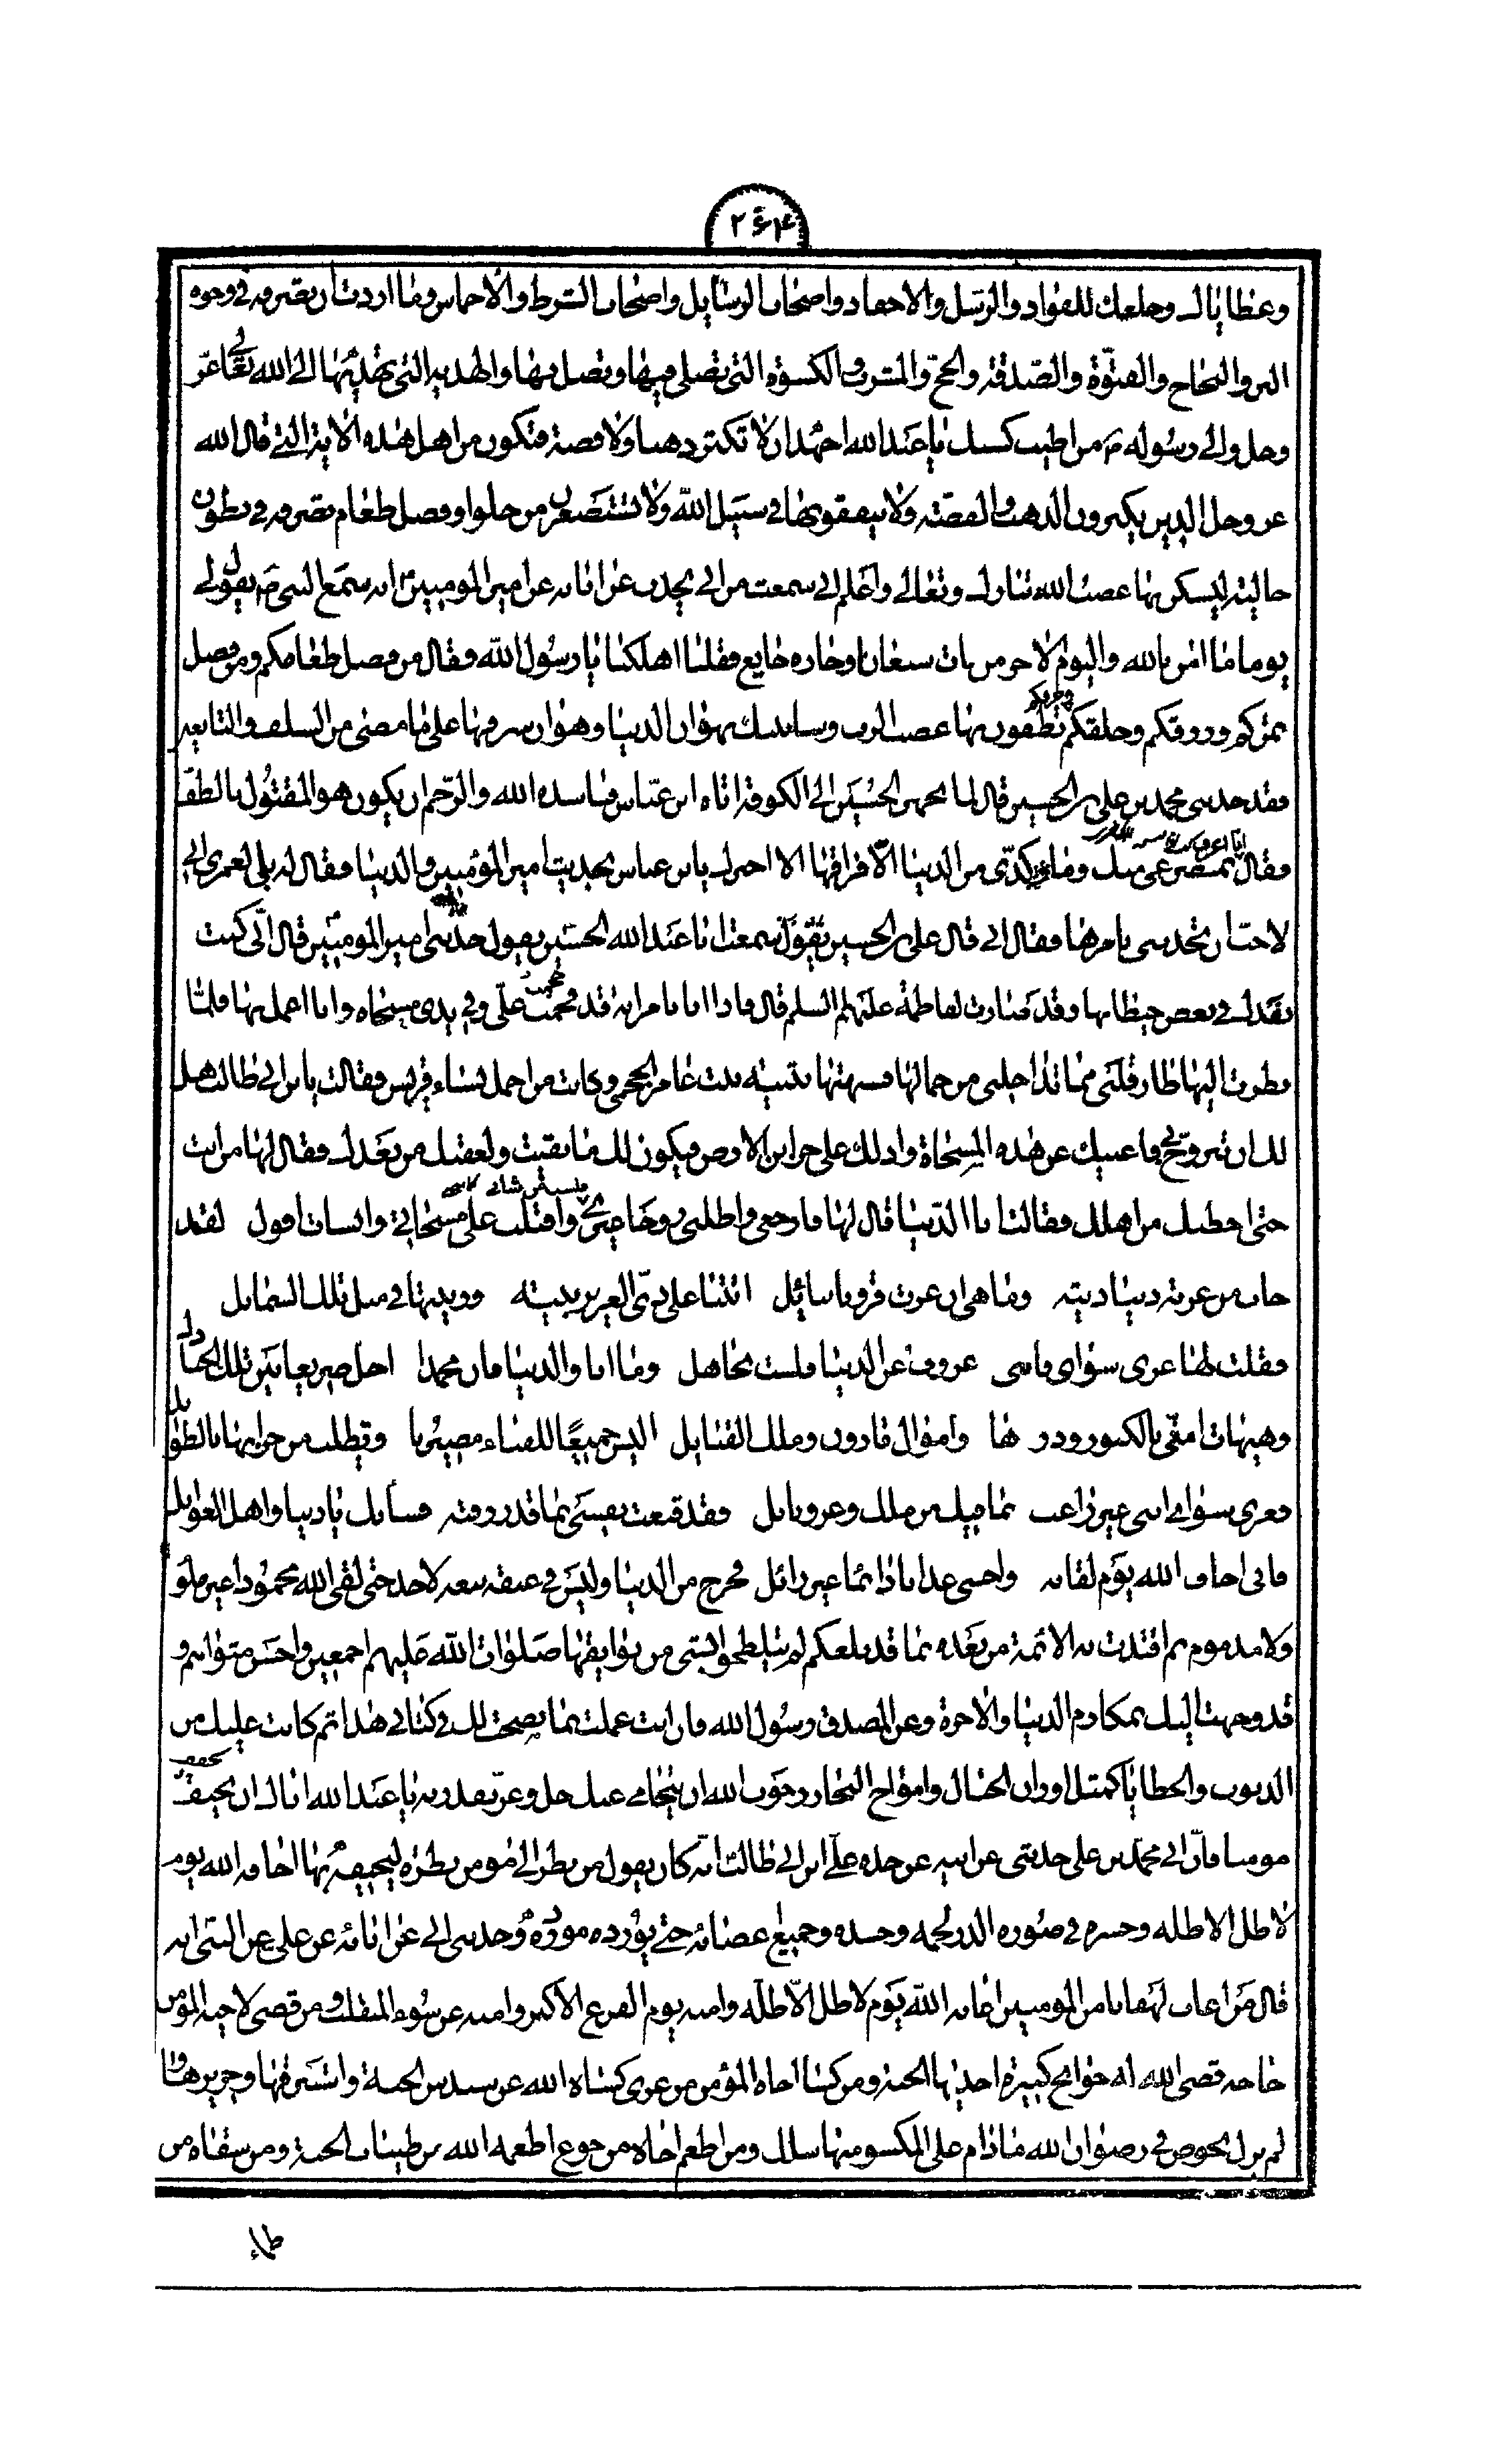 ۲۶۴
وعطاياك وخلعك للقواد والرسل والاحفاد واصحاب الرسايل واصحاب الشرط والاخماس وما اردت ان تصرفه في وجوه
البر والنجاح والفتوّة والصّدقة والحج والمشرب والكسوة التي تصلي فيها وتصل بها والهدية التي تهديها الى الله تعالى عزّ
وجل والى رسوله من اطيب كسبك يا عبد الله اجهد ان لا تكنز ذهبا ولا فضة فتكون من اهل هذه الاية التي قال الله
عز وجل الذين يكنزون الذهب والفضّة ولا ينفقونها في سبيل الله ولا تستصغرن من حلو او فضل طعام تصرفه في بطون
خالية ليسكن بها غضب الله تبارك وتعالى واعلم اني سمعت من ابي يحدث عن ابائه عن امير المومنين انه سمع النبي يقول
يوما ما امن بالله واليوم الاخر من بات شبعان وجاره جايع فقلنا اهلكنا يا رسول الله فقال من فضل طعامكم ومن فضل
تمركم ورزقكم وخلقكم وخرقكم تطفون بها غضب الرب وسانبئك بهوان الدنيا وهوان شرفها على ما مضى من السلف والتابعين
فقد حدثني محمد بن علي بن الحسين قال لما تجهز الحسين الى الكوفة اتاه ابن عبّاس فناشده الله والرّحم ان يكون هو المقتول بالطف
فقال انا اعرف بمصرعي منك وما وكدي من الدنيا الّا فراقها الا اخبرك يابن عباس بحديث امير المؤمنين والدنيا فقال له بلى لعمري اني
لاحب ان تحدثني بامرها فقال ابي قال علي بن الحسين يقول سمعت ابا عبد الله الحسين يقول حدثني امير المومنين قال انّي كنت
بفدك في بعض حيطانها وقد صارت لفاطمة عليهم السلم قال فاذا انا بامراة قد هجمت علي وفي يدي مسحاة وانا اعمل بها فلمّا
نظرت اليها طار قلبي مما تداخلني من جمالها فشبهتها ببثينه بنت عامر الجمحي وكانت من اجمل نساء قريش فقالت يابن ابي طالب هل
لك ان تتزوّج بي فاغنيك عن هذه المسحاة وادلك على خزاين الارض فيكون لك ما بقيت ولعقبك من بعدك فقال لها من انت
حتى اخطبك من اهلك فقالت انا الدّنيا قال لها فارجعي واطلبي زوجا غيري واقبلت على مسحاتي وانشات اقول لقد
خاب من غرته دنيا دنيّه وما هي ان غرت قرونا بنائل اتتنا على زيّ العزيز بثينه وزينتها في مثل تلك الشمايل
فقلت لها غري سواي فانني عزوف عن الدنيا فلست بجاهل وما انا والدنيا فان محمدا احل صريعا بين تلك الجنادل
وهيهات امنّي بالكنوز ودرها واموال قارون وملك القبايل اليس جميعًا للفناء مصيرنا وتطلب من خزانها بالطوايل
فغري سواي انني غير راغب بما فيك من ملك وعز ونايل فقد قنعت نفسي بما قد رزقته فشانك يا دنيا واهل الغوايل
فاني اخاف الله يوم لقائه واخشى عذابا دائما غير زائل فخرج من الدنيا وليس في عنقه تبعه لاحد حتى لقي الله محمودا غير ملوم
ولا مذموم ثم اقتدت به الائمة من بعده بما قد بلغكم لم يتلطخوا بشي من بوايقها صلوات الله عليهم اجمعين واحسن مثواهم و
قد وجهت اليك بمكارم الدنيا والاخرة وعن المصدق رسول الله فان انت عملت بما نصحت لك في كتابي هذا ثم كانت عليك من
الذنوب والخطايا كمثل اوزان الجبال وامواج البحار رجوت الله ان يتجافى عنك جل وعز بقدرته يا عبد الله اياك ان تخيف
مومنا فانّ ابي محمد بن علي حدثني عن ابيه عن جده علي ابن ابي طالب انّه كان يقول من نظر الى مومن نظرة ليخيفه بها اخافه الله يوم
لا ظل الا ظله وحشره في صورة الذر لحمه وجسده وجميع اعضائه حتى يورده مورده وحدثني ابي عن ابائه عن علي عن النبي انه
قال من اغاث لهفانا من المومنين اغاثه الله يوم لا ظل الّا ظلّه وامنه يوم الفزع الاكبر وامنه عن سوء المنقلب ومن قضى لاخيه المومن
حاجة قضى الله له حوايج كثيرة احديها الجنة ومن كسا اخاه المؤمن من عري كساه الله عن سندس الجنة واستبرقها وحريرها و
لم يزل يخوض في رضوان الله ما دام على المكسو منها سلك ومن اطعم اخاه من جوع اطعمه الله من طيبات الجنة ومن سقاه من
ظماء